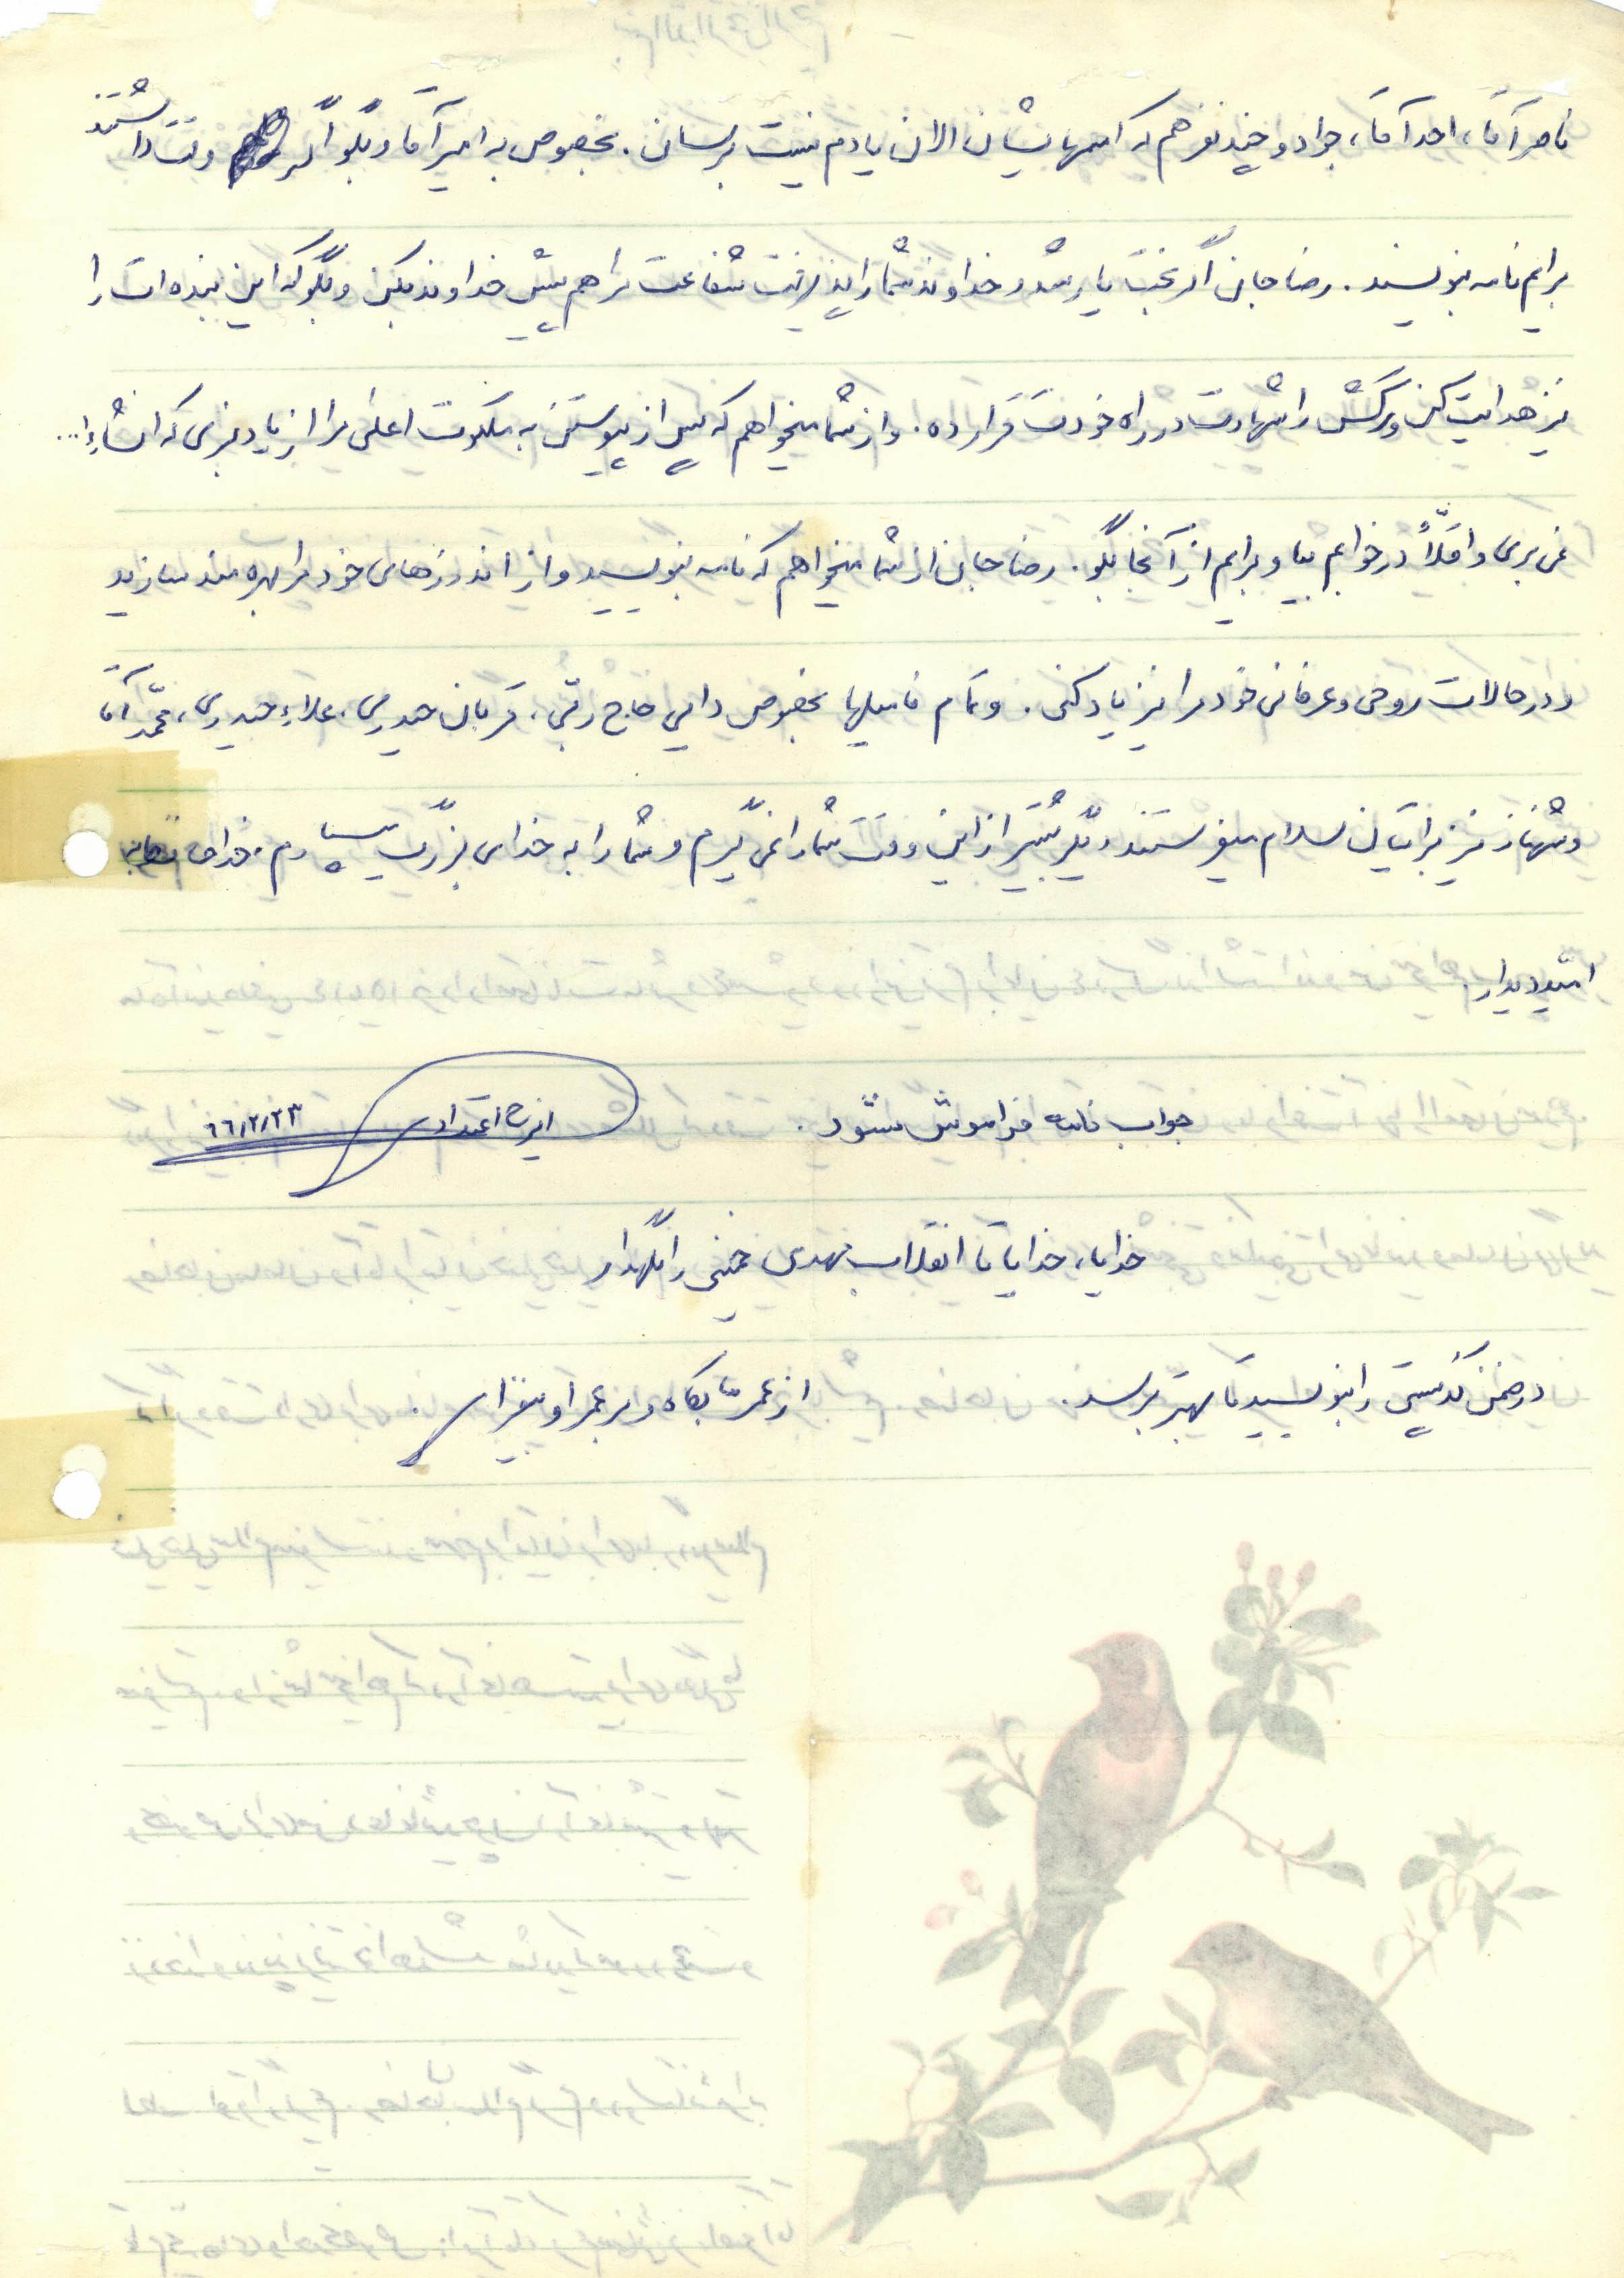 ناصر آقا، احد آقا، جواد و چند نفر هم که اسمهایشان الان یادم نیست برسان. بخصوص به امیر آقا و بگو اگر وقت داشتند
برایم نامه بنویسند. رضا جان اگر بخت یار شد و خداوند شما را پذیرفت شفاعت مرا هم پیش خداوند بکن و بگو که این بنده‌ات را
نیز هدایت کن و مرگش را شهادت در راه خودت قرار ده. و از شما میخواهم که پس از پیوستن به ملکوت اعلی مرا از یاد نبری که انشاءا...
نمی‌بری و اقلاً در خوابم بیا و برایم از آنجا بگو. رضا جان از شما میخواهم که نامه بنویسید و از اندرزهای خود مرا بهره مند سازید
و در حالات روحی و عرفانی خود مرا نیز یاد کنی. و تمام فامیلها بخصوص دایی حاج ربّی، قربان حیدری، علاء حیدری، محمّد آقا
و شهناز نیز برایتان سلام میفرستند دیگر بیشتر از این وقت شما را نمی‌گیرم و شما را به خدای بزرگ میسپارم. خداحافظ
امید دیدار.
جواب نامه فراموش نشود. ایرج اعتمادی ۶۶/۲/۲۳
خدایا، خدایا تا انقلاب مهدی خمینی را نگهدار
در ضمن کد پستی را بنویسید تا بهتر برسد. از عمر ما بکاه و بر عمر او بیفزای.